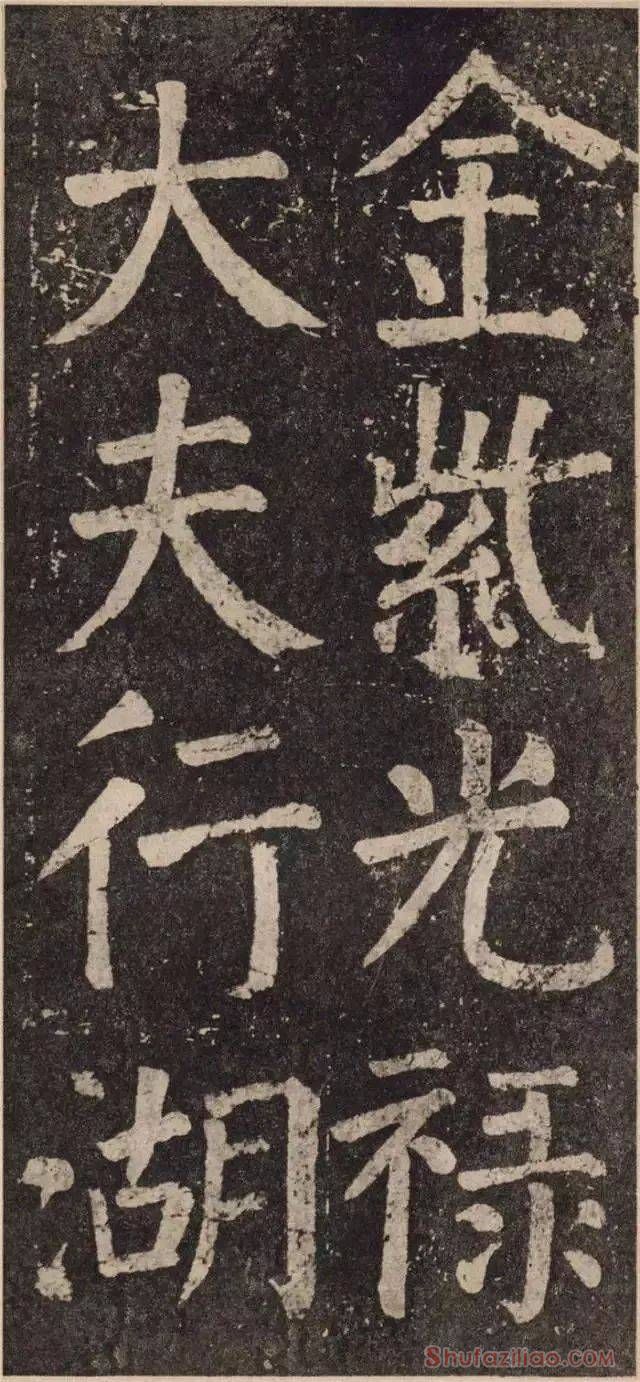 金紫光禄
大夫行湖
Shufaziliao.com